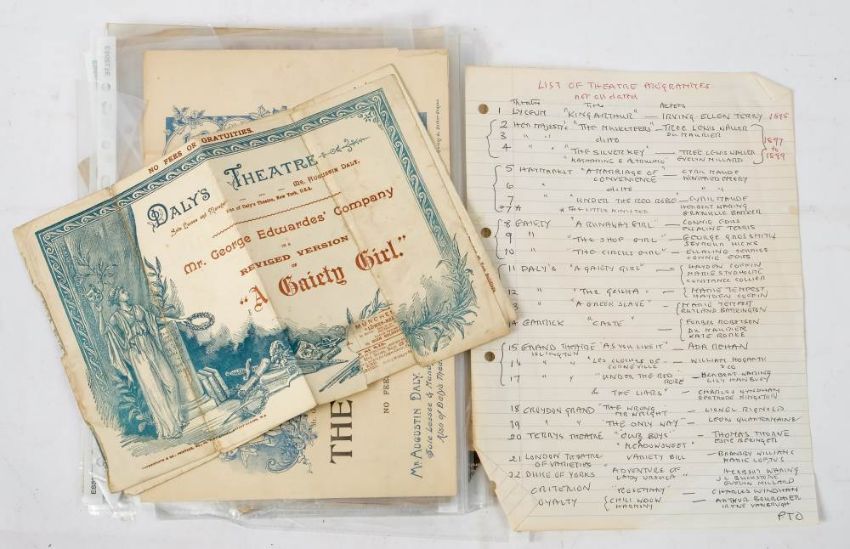 NO FEES OR GRATUITIES.
DALY'S THEATRE
Mr. AUGUSTIN DALY,
Sole Lessee and Manager
Also of Daly's Theatre, New York, U.S.A.
Mr. George Edwardes' Company
IN A
REVISED VERSION
OF
"A Gaiety Girl."
THE
NO FEES
MR. AUGUSTIN DALY,
Sole Lessee &
Also of Daly's Thea
LIST OF THEATRE PROGRAMMES
NOT ALL DATED
Theatre Title ACTORS
1 LYCEUM "KING ARTHUR" — IRVING. ELLEN TERRY 1895
2 HER MAJESTYS "THE MUSKETEERS" — TREE LEWIS WALLER
DU MAURIER
3 " " ditto 1897
to
4 " " "THE SILVER KEY" — TREE LEWIS WALLER 1899
KATHARINE & PETRUCHIO EVELYN MILLARD
5 HAYMARKET "A MARRIAGE OF — CYRIL MAUDE
CONVENIENCE WINIFRED EMERY
6 " ditto " "
7 " "UNDER THE RED ROBE" — CYRIL MAUDE
7A " THE LITTLE MINISTER HERBERT WARING
GRANVILLE BARKER
8 GAIETY "A RUNAWAY GIRL" — CONNIE EDISS
ELLALINE TERRIS
9 " "THE SHOP GIRL" — GEORGE GROSSMITH
SEYMOUR HICKS
10 " "THE CIRCUS GIRL" — ELLALINE TERRISS
CONNIE EDISS
11 DALY'S "A GAIETY GIRL" — HAYDEN COFFIN
MARIE STUDHOLME
CONSTANCE COLLIER
12 " "THE GEISHA" — MARIE TEMPEST
HAYDEN COFFIN
13 " "A GREEK SLAVE" — MARIE TEMPEST
RUTLAND BARRINGTON
14 GARRICK "CASTE" — FORBES ROBERTSON
DU MAURIER
KATE RORKE
15 GRAND THEATRE "AS YOU LIKE IT" — ADA REHAN
ISLINGTON
16 " " "LES CLOCHES DE — WILLIAM HOGARTH
CORNEVILLE & CO
17 " " "UNDER THE RED — HERBERT WARING
ROBE LILY HANBURY
& THE LIARS" — CHARLES WYNDHAM
GERTRUDE KINGSTON
18 CROYDON GRAND "THE WRONG — LIONEL RIGNOLD
MR WRIGHT"
19 " " THE ONLY WAY" — LEON QUARTERMAINE
20 TERRYS THEATRE "OUR BOYS" — THOMAS THORNE
"MEADOWSWEET"
21 LONDON THEATRE VARIETY BILL — BRANSBY WILLIAMS
OF VARIETIES MARIE LOFTUS
22 DUKE OF YORKS "ADVENTURE OF HERBERT WARING
LADY URSULA"
EVELYN MILLARD
CRITERION "ROSEMARY" — CHARLES WYNDHAM
ROYALTY ARTHUR BOURCHIER
IRENE VANBRUGH
PTO